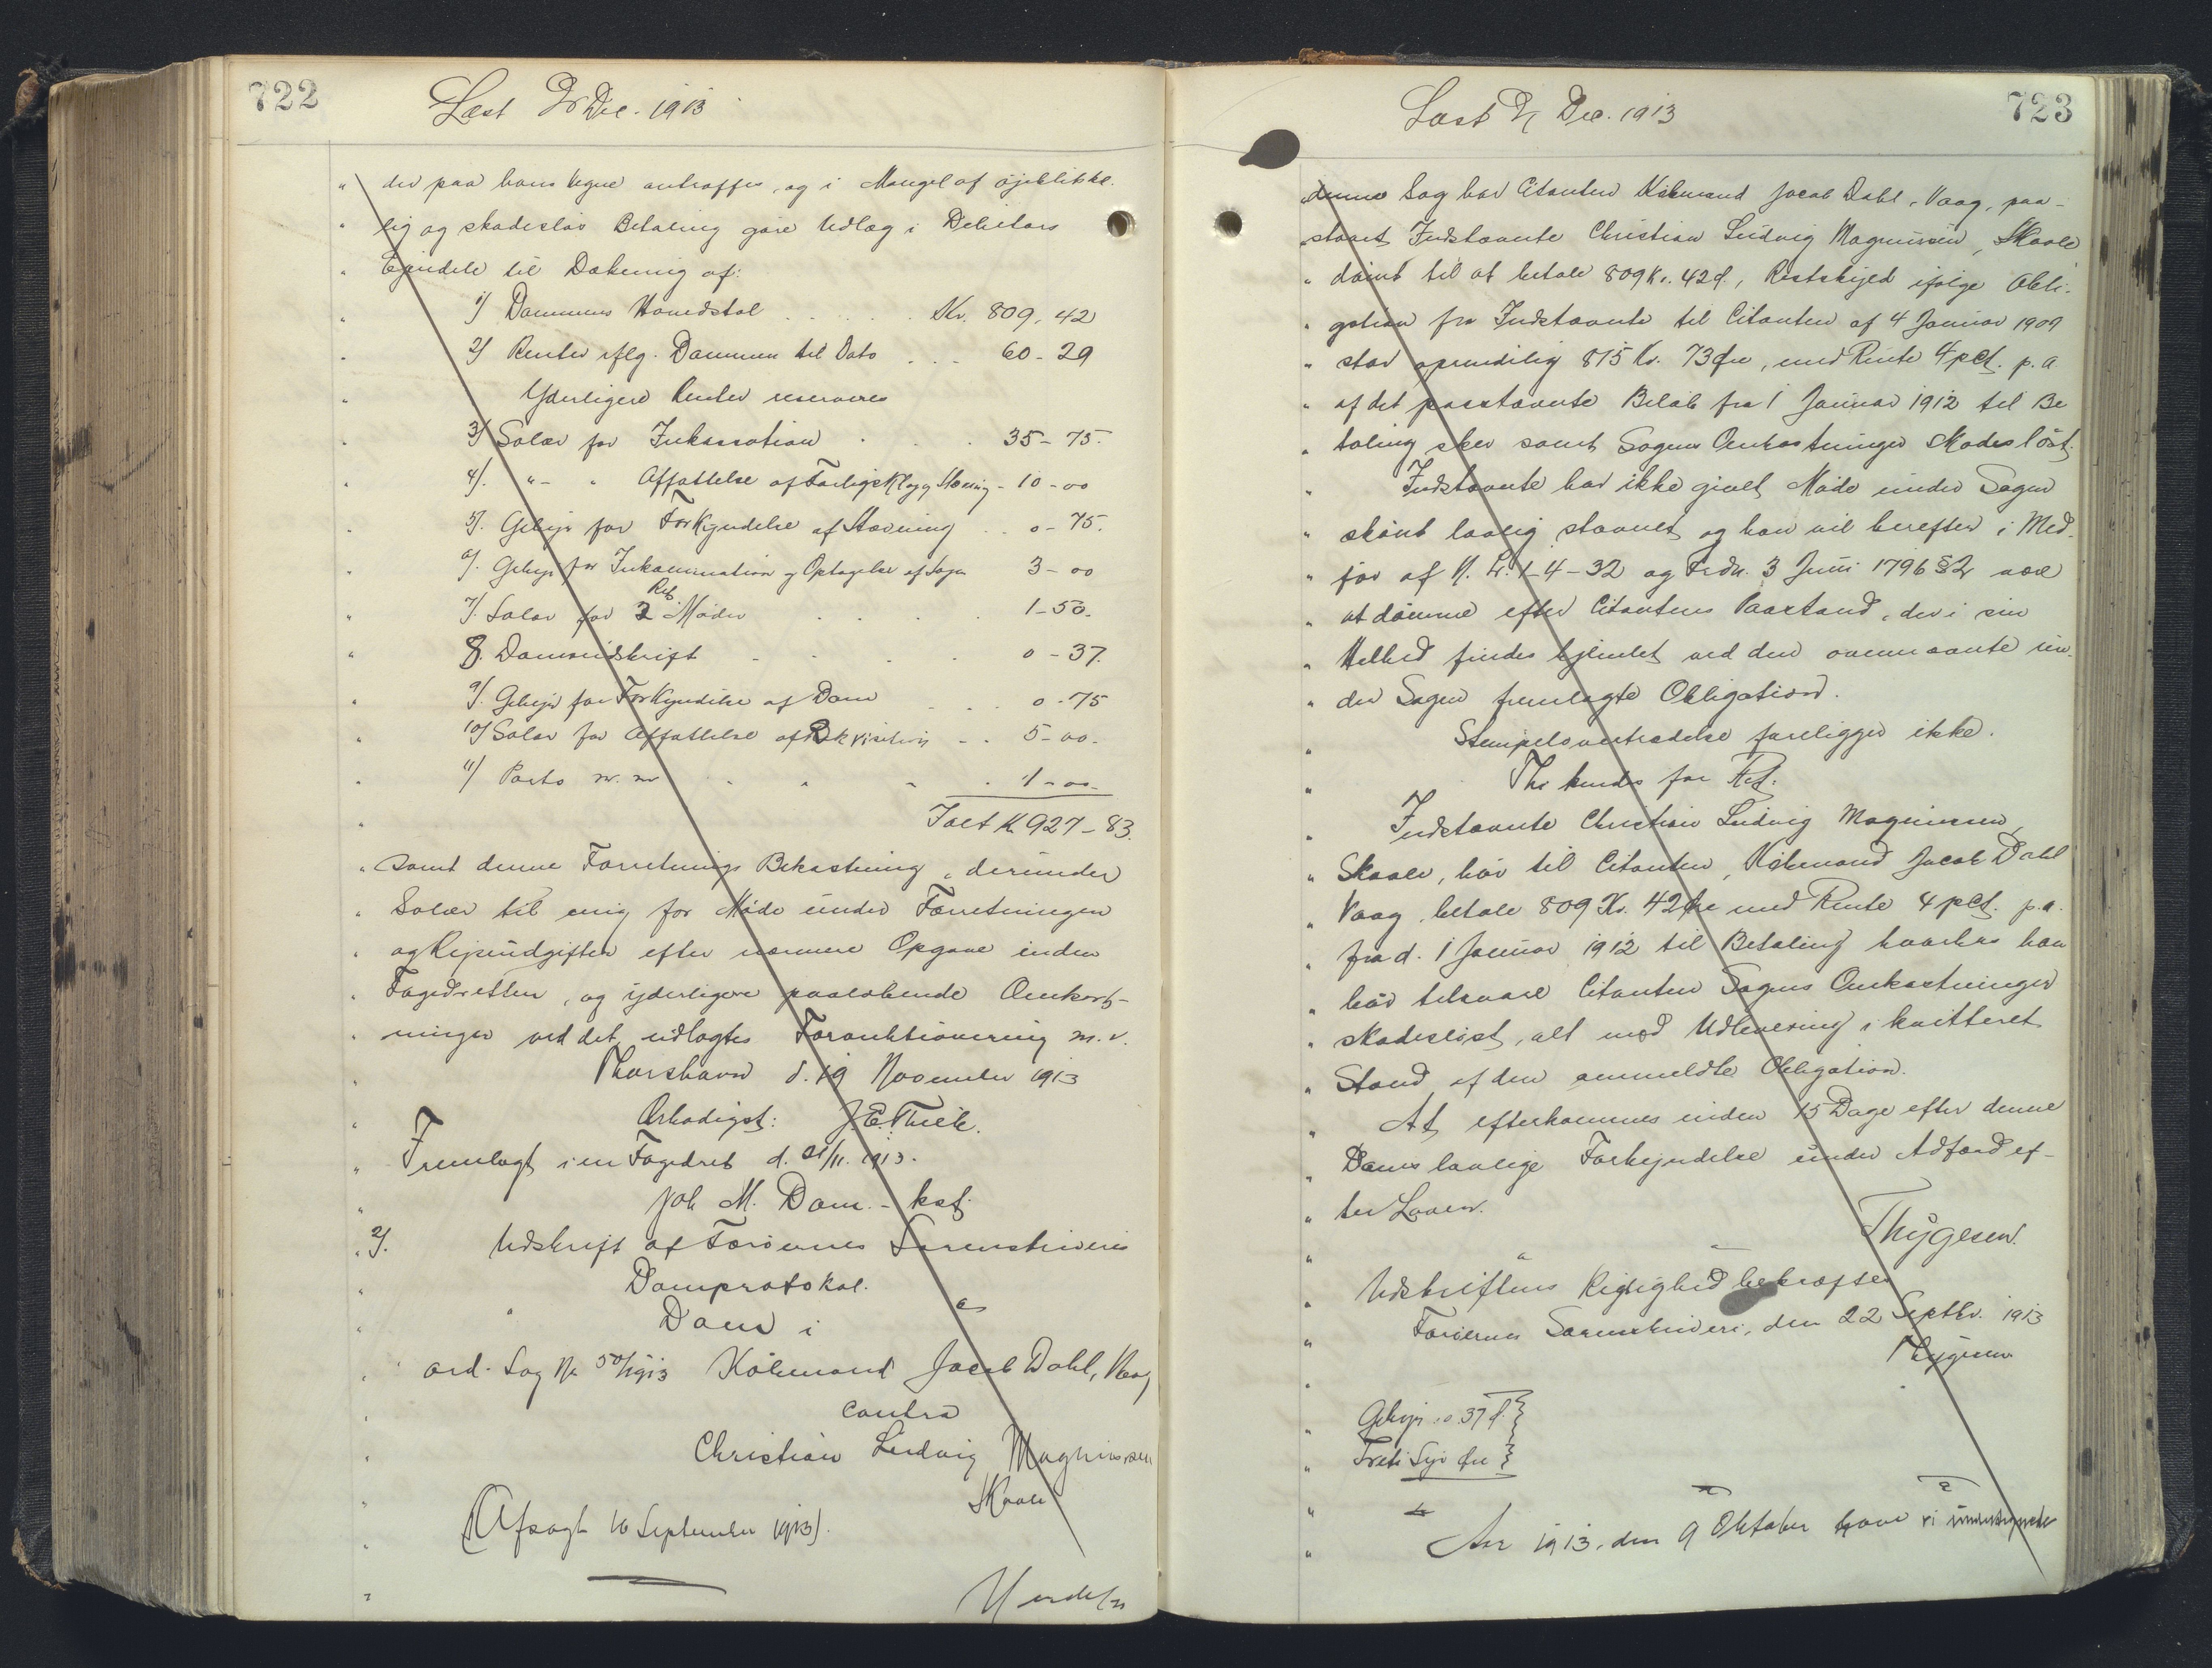 722
Læst 2/ Dec. 1913
" der paa hans Vegne antræffes, og i Mangel af øjeblikke-
" lig og skadesløs Betaling gøre Udlæg i Debitors
" Ejendele til Dækning af:
" 1) Dommens Hovedstol . . . . . Kr. 809, 42
" 2) Renter iflg. Dommen til Dato . . . 60 - 29
" Yderligere Renter reserveres
" 3) Salær for Inkassation . . . 35 - 75.
" 4). " - " Affattelse af Forligsklag og Stævning - 10 - 00
" 5). Gebyr for Forkyndelse af Stævning . . 0 - 75.
" 6). Gebyr for Inkamination og Optagelse af Sagen 3 - 00
" 7). Salær for 2 Ret Møder . . . . 1 - 50.
" 8. Domsudskrift . . . . 0 - 37.
" 9). Gebyr for Forkyndelse af Dom . . . 0 - 75
" 10) Salær for Affattelse af Rekvisition . . 5 - 00.
" 11) Porto m. m . . . . 1 - 00.
" Ialt Kr 927 - 83.
" samt denne Forretnings Bekostning, derunder
" Salær til mig for Møde under Forretningen
" og Rejseudgifter efter nærmere Opgave inden
" Fogedretten, og yderligere paaløbende Omkost-
" ninger ved det udlagtes Forauktionering m. v.
" Thorshavn d. 19 November 1913
" Ærbødigst: J. E. Thiele.
" Fremlagt i en Fogedret d. 21/11. 1913.
" Joh M. Dam. - kst.
" 2). Udskrift af Færøernes Sorenskriveris
" Domprotokol.
" Dom i
" ord. Sag No 50/1913 Købmand Jacob Dahl, Vaag
" contra
" Christian Ludvig Magnussen
" Skaale
" (Afsagt 16 September 1913).
" Under

723
Læst 2/ Dec. 1913
" denne Sag har Citanten Købmand Jacob Dahl, Vaag, paa-
" staaet Indstævnte Christian Ludvig Magnussen, Skaale
" dømt til at betale 809 Kr. 42 Ø., Restskyld ifølge Obli-
" gation fra Indstævnte til Citanten af 4 Januar 1909
" stor oprindelig 815 Kr. 73 Øre, med Rente 4 pCt. p. a
" af det paastævnte Beløb fra 1 Januar 1912 til Be
" taling sker samt Sagens Omkostninger skadesløst.
" Indstævnte har ikke givet Møde under Sagen
" skønt lovlig stævnet og han vil herefter i Med-
" før af N. L. 1-4-32 og Frdn. 3 Juni 1796 § 2 være
" at dømme efter Citantens Paastand, der i sin
" Helhed findes hjemlet ved den ovennævnte un-
" der Sagen fremlagte Obligation.
" Stempelovertrædelse foreligger ikke.
" Thi kendes for Ret:
" Indstævnte Christian Ludvig Magnussen,
" Skaale, bør til Citanten, Købmand Jacob Dahl
" Vaag, betale 809 Kr. 42 Øre med Rente 4 pCt. p. a.
" fra d. 1 Januar 1912 til Betaling hvorhos han
" bør tilsvare Citanten Sagens Omkostninger
" skadesløst, alt mod Udlevering i kvitteret
" Stand af den ommeldte Obligation.
" At efterkommes inden 15 Dage efter denne
" Doms lovlige Forkyndelse under Adfærd ef-
" ter Loven.
" Thygesen.
" Udskriftens Rigtighed bekræftes
" Færøernes Sorenskriveri, den 22 Septbr. 1913
" Thygesen
" Gebyr: 0. 37 Ø.
" Treti Syv Øre
" Aar 1913, den 9 Oktober have vi undertegnede